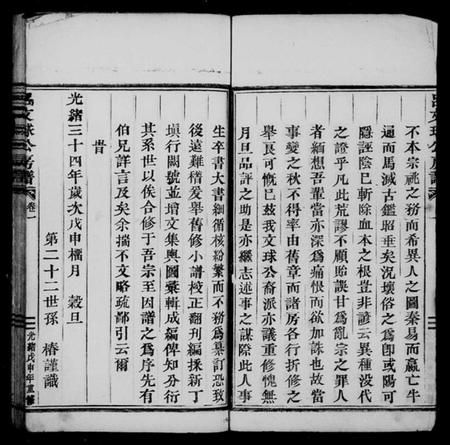 不本宗祧之務而希異人之圖秦易而嬴亡牛
通而馬滅古鑑昭垂矣況壞俗之為即或陽可
隱誣陰已斬除血本之根豈非諺云異種沒代
之證乎凡此荒謬不顧貽誤甘為亂宗之罪人
者緬想吾輩當亦深為痛恨而欲加誅也故當
事變之秋不得率由舊章而諸房各行折修之
舉良可慨已茲我文球公裔派亦議重修愧無
月旦品評之助是亦繼志述事之謀除此人事
生卒書大書細循核紛繁而不務為纂訂恐致
後遠難稽爰舉舊修小譜校正翻刊編採新丁
塡行闕號並增文集輿圖彙輯成編俾知分衍
其系世以俟合修于吾宗至因譜之為序先有
伯兄詳言及矣余揣不文略疏鄙引云爾
旹
光緒三十四年歲次戊申橘月 穀旦
第二十二世孫 椿謹識
文球公房譜
卷一
光緒戊申年重修